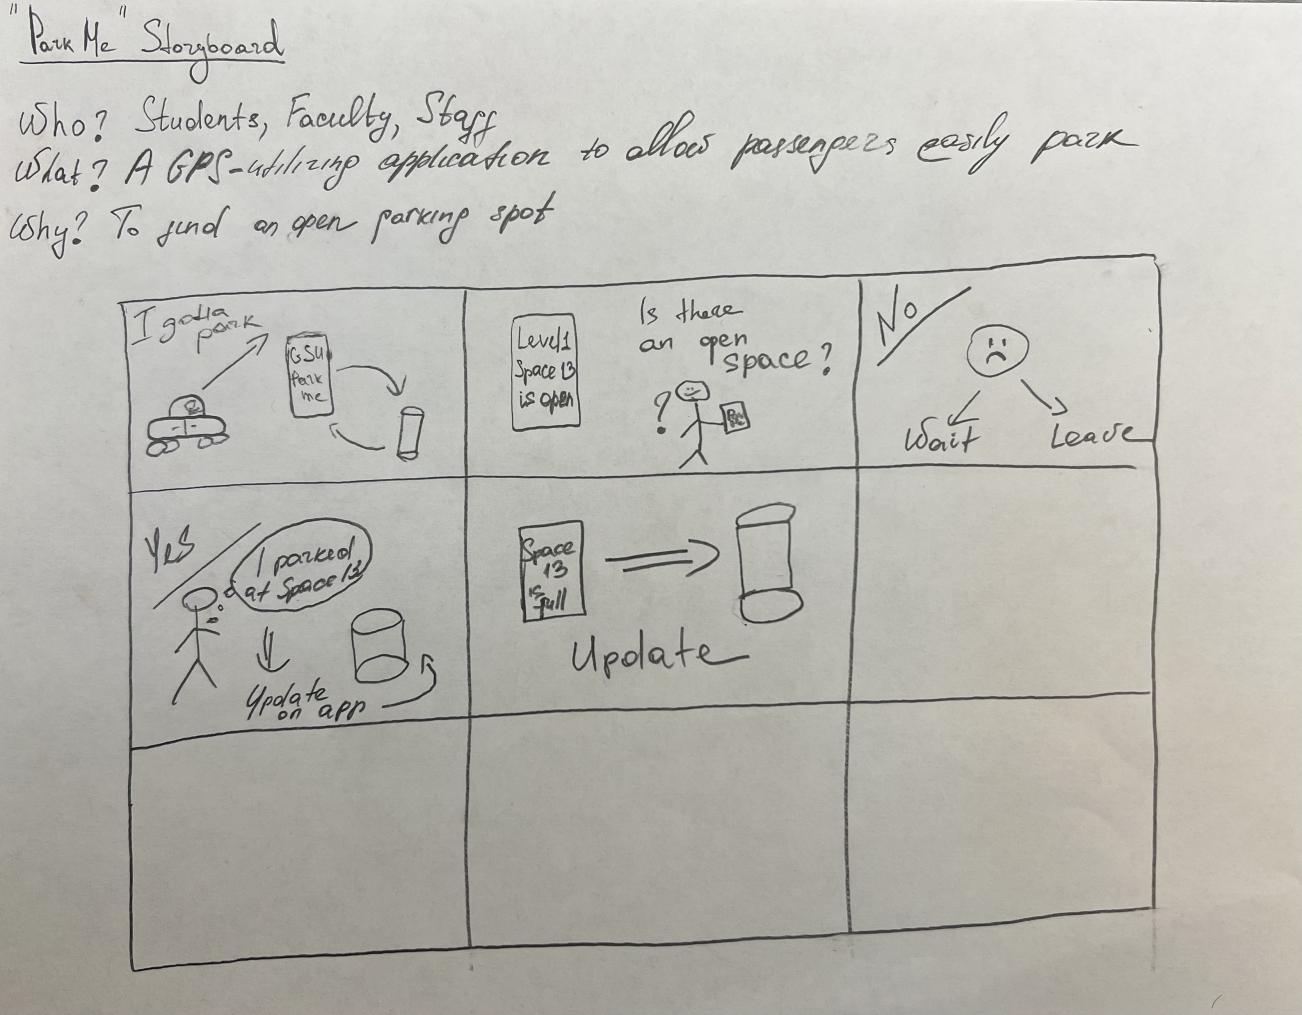 "Park Me" Storyboard
Who? Students, Faculty, Staff
What? A GPS-utilizing application to allow passengers easily park
Why? To find an open parking spot
I gotta
park
GSU
Park
me
Level 1
Space 13
is open
Is there
an open
space?
?
No
Wait
Leave
Yes
I parked
at Space 13
Update
on app
Space
13
is
full
Update